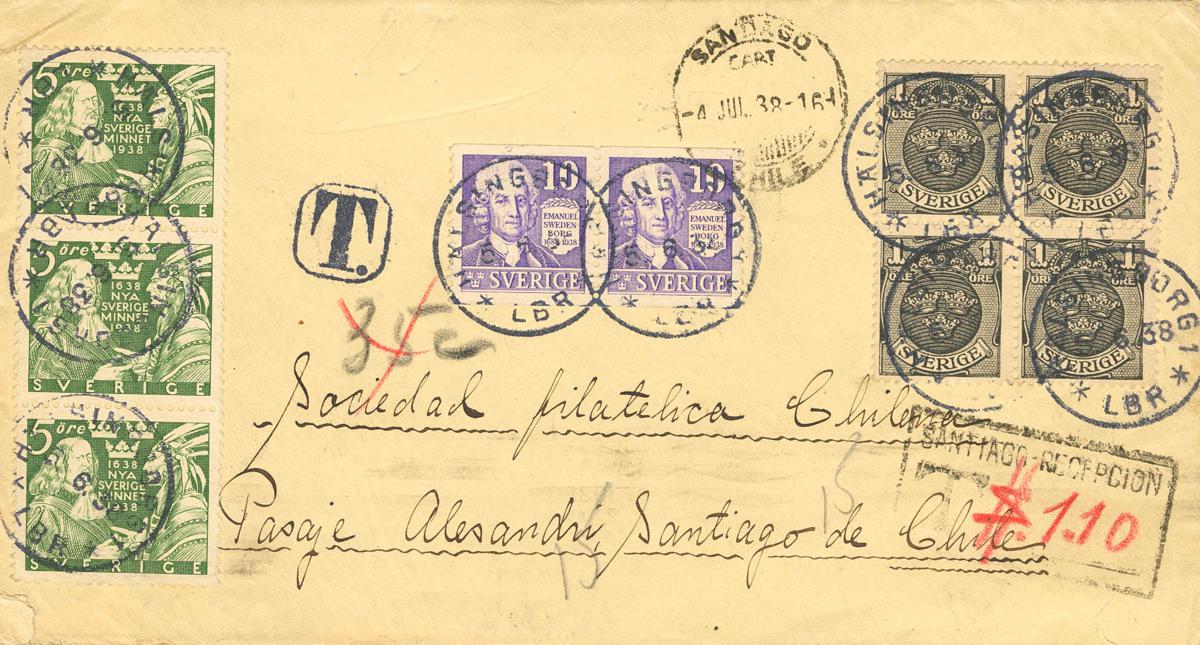 5 öre
1638
NYA
SVERIGE
MINNET
1938
SVERIGE
5 öre
1638
NYA
SVERIGE
MINNET
1938
SVERIGE
5 öre
1638
NYA
SVERIGE
MINNET
1938
SVERIGE
T.
10
EMANUEL
SWEDEN-
BORG
1688-1938
SVERIGE
10
EMANUEL
SWEDEN-
BORG
1688-1938
SVERIGE
LBR
SANTIAGO
CART
-4 JUL.38-16
CHILE
1 1
ÖRE ÖRE
SVERIGE
1 1
ÖRE
SVERIGE
1 1
ÖRE
SVERIGE
1 1
ÖRE
SVERIGE
LBR
35c
Sociedad filatelica Chilena
Pasaje Alesandri, Santiago de Chile
15
15
SANTIAGO-RECEPCION
T $1.10